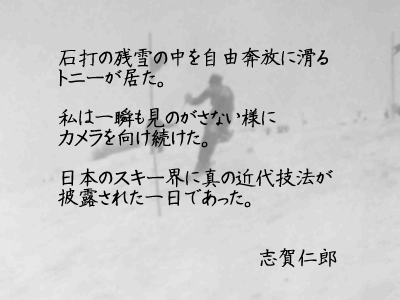 石打の残雪の中を自由奔放に滑る
トニーが居た。
私は一瞬も見のがさない様に
カメラを向け続けた。
日本のスキー界に真の近代技法が
披露された一日であった。
志賀仁郎